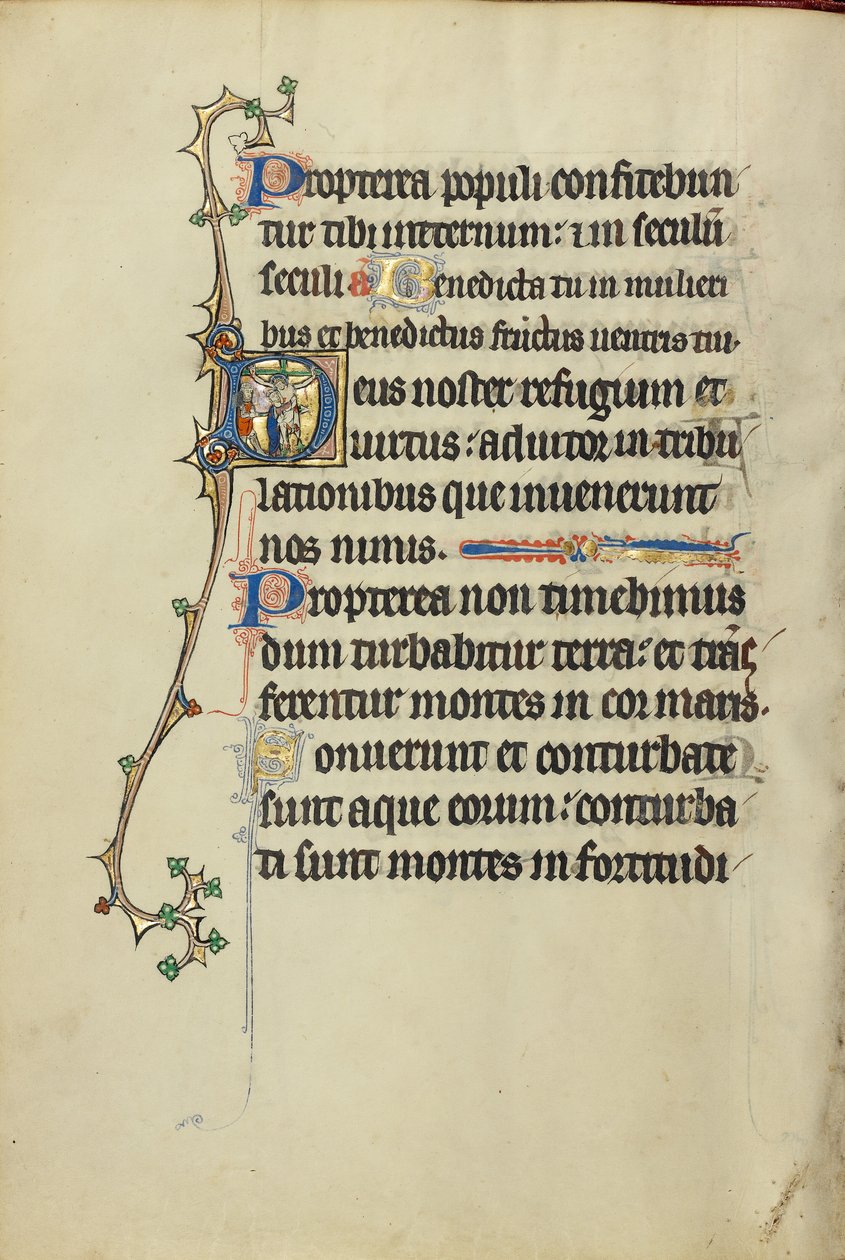 Propterea populi confitebun
tur tibi ineternum: ⁊ in seculū
seculi a Benedicta tu in mulieri
bus et benedictus fructus uentris tui.
Deus noster refugium et
uirtus: adiutor in tribu
lationibus que inuenerunt
nos nimis.
Propterea non timebimus
dum turbabitur terra: et trāſ
ferentur montes in cor maris.
Sonuerunt et conturbate
sunt aque eorum: conturba
ti sunt montes in fortitudi